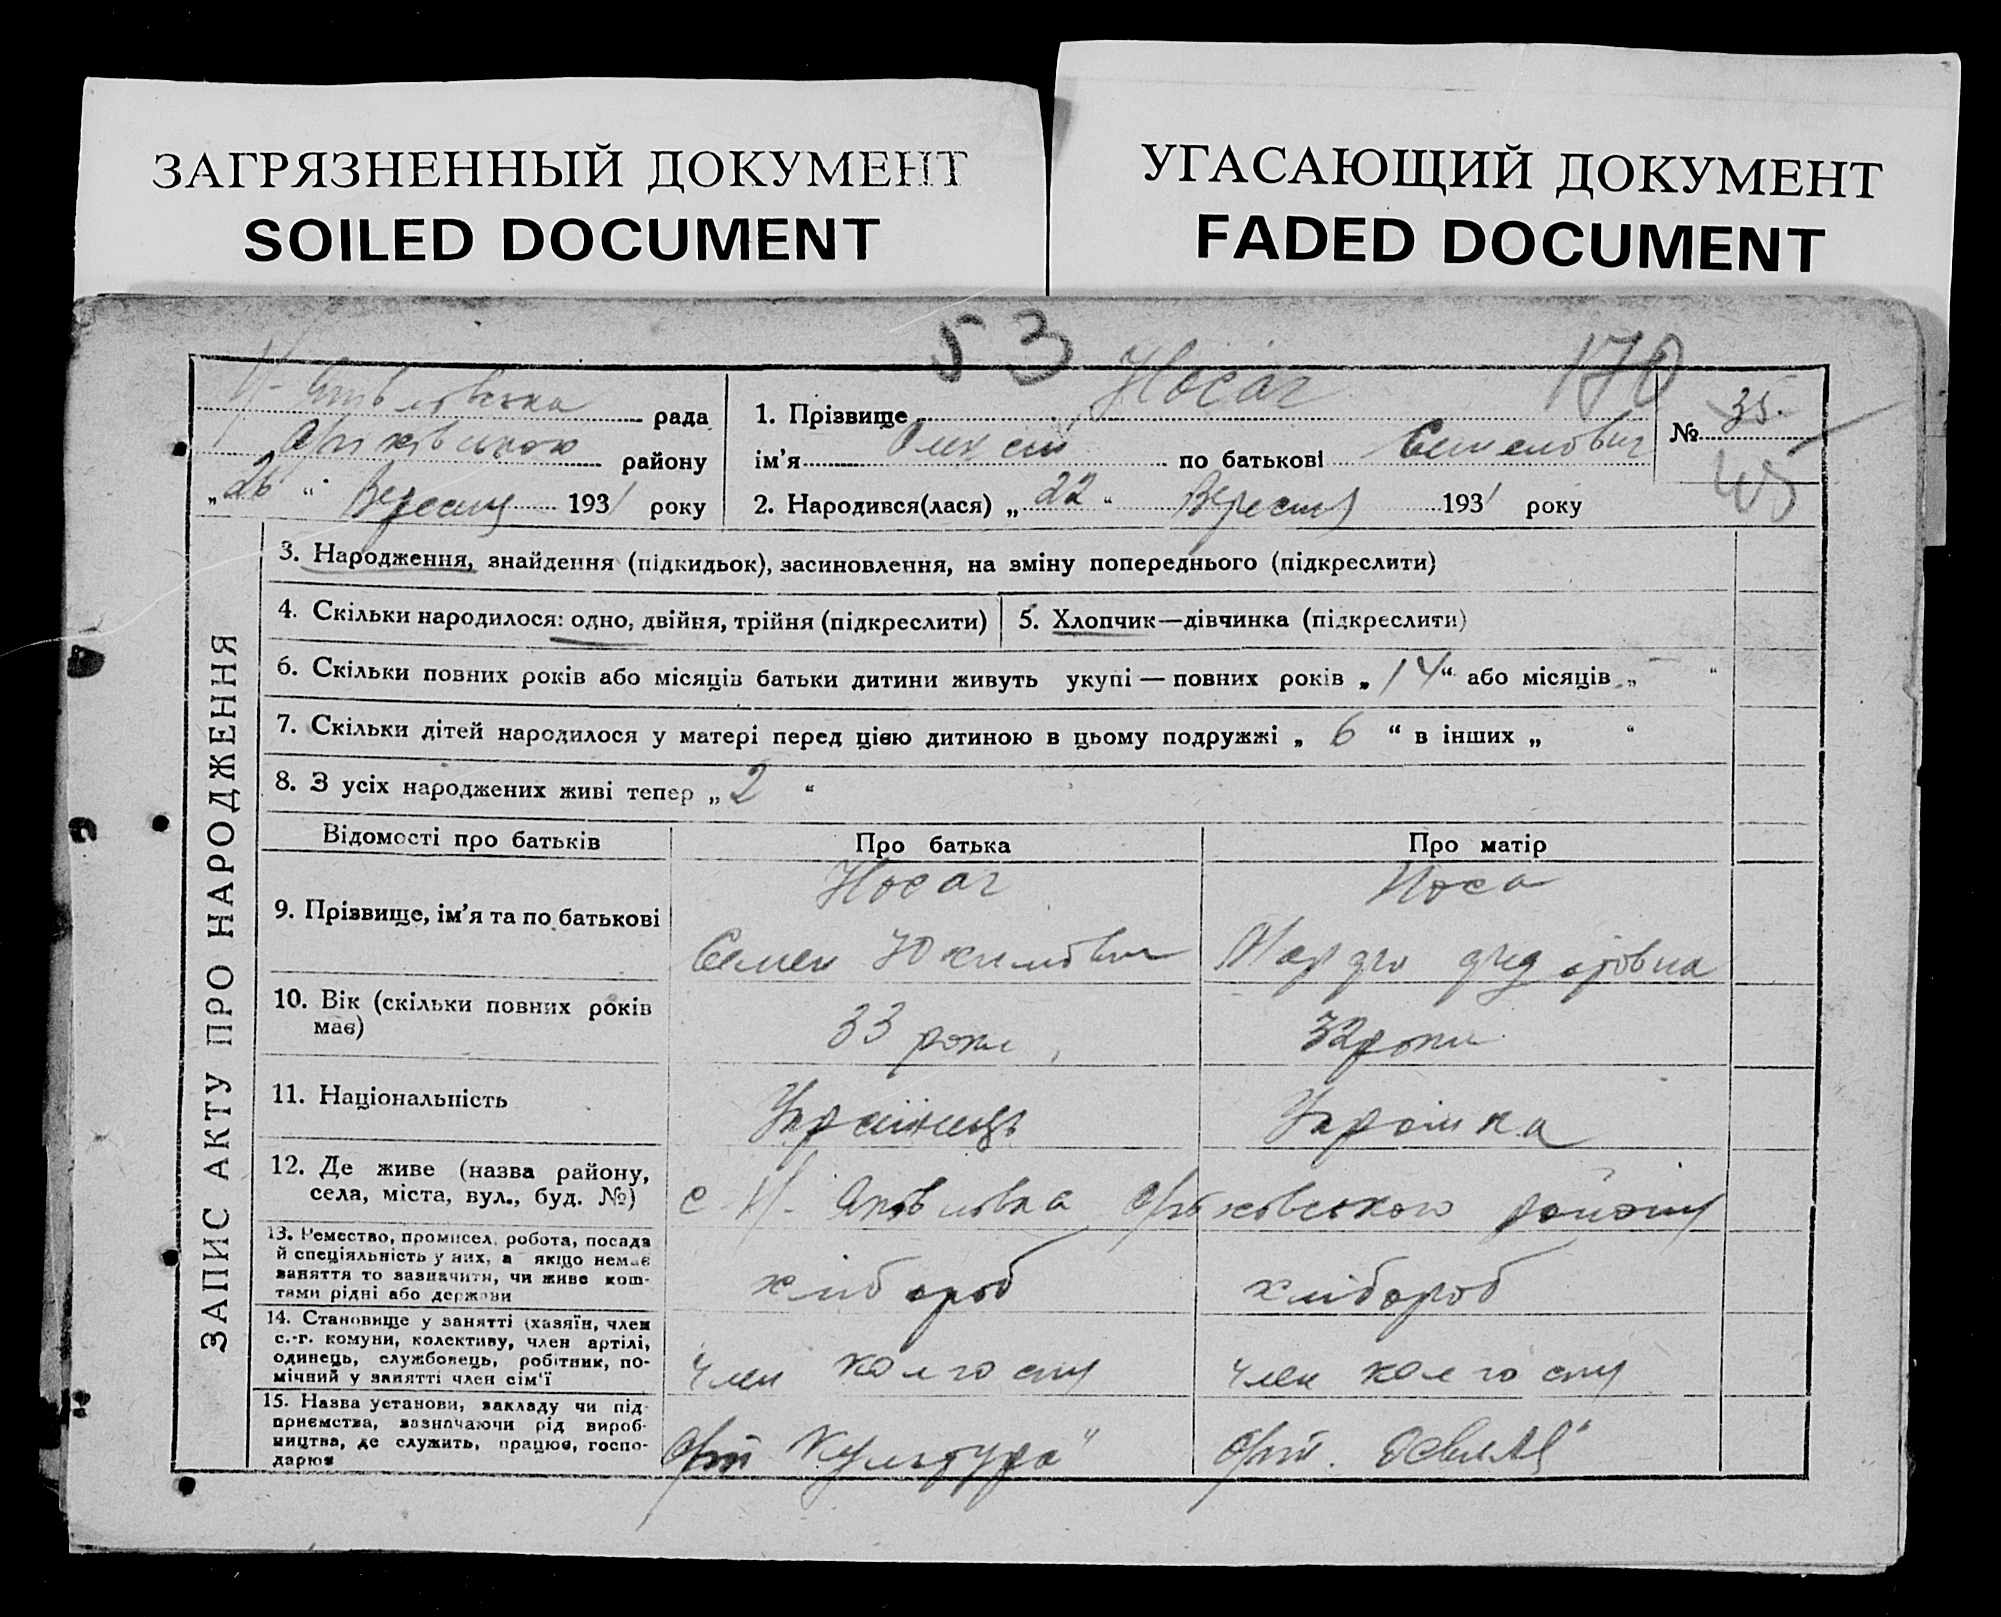 ЗАГРЯЗНЕННЫЙ ДОКУМЕНТ
SOILED DOCUMENT
УГАСАЮЩИЙ ДОКУМЕНТ
FADED DOCUMENT
53
170
рада
району
„26“ Вересня 1931 року
1. Прізвище Носаг
ім'я Олексій по батькові Семенович
2. Народився(лася) „22“ Вересня 1931 року
№ 35.
45
ЗАПИС АКТУ ПРО НАРОДЖЕННЯ
3. Народження, знайдення (підкидьок), засиновлення, на зміну попереднього (підкреслити)
4. Скільки народилося: одно, двійня, трійня (підкреслити)
5. Хлопчик—дівчинка (підкреслити)
6. Скільки повних років або місяців батьки дитини живуть укупі — повних років „14“ або місяців „—“
7. Скільки дітей народилося у матері перед цією дитиною в цьому подружжі „6“ в інших „ “
8. З усіх народжених живі тепер „2“
Відомості про батьків
Про батька
Про матір
9. Прізвище, ім'я та по батькові
Носаг
Семен Юхимович
Носа
10. Вік (скільки повних років
має)
33 роки
32 роки
11. Національність
Українець
Українка
12. Де живе (назва району,
села, міста, вул., буд. №)
с. району
13. Ремество, промисел, робота, посада
й спеціяльність у них, а якщо немає
заняття то зазначити, чи живе кош-
тами рідні або держави
хлібороб
хлібороб
14. Становище у занятті (хазяїн, член
с.-г. комуни, колективу, член артілі,
одинець, службовець, робітник, по-
мічний у занятті член сім'ї
член колгоспу
член колгоспу
15. Назва установи, закладу чи під-
приємства, зазначаючи рід вироб-
ництва, де служить, працює, госпо-
дарює
Арт Культура"
Арт.